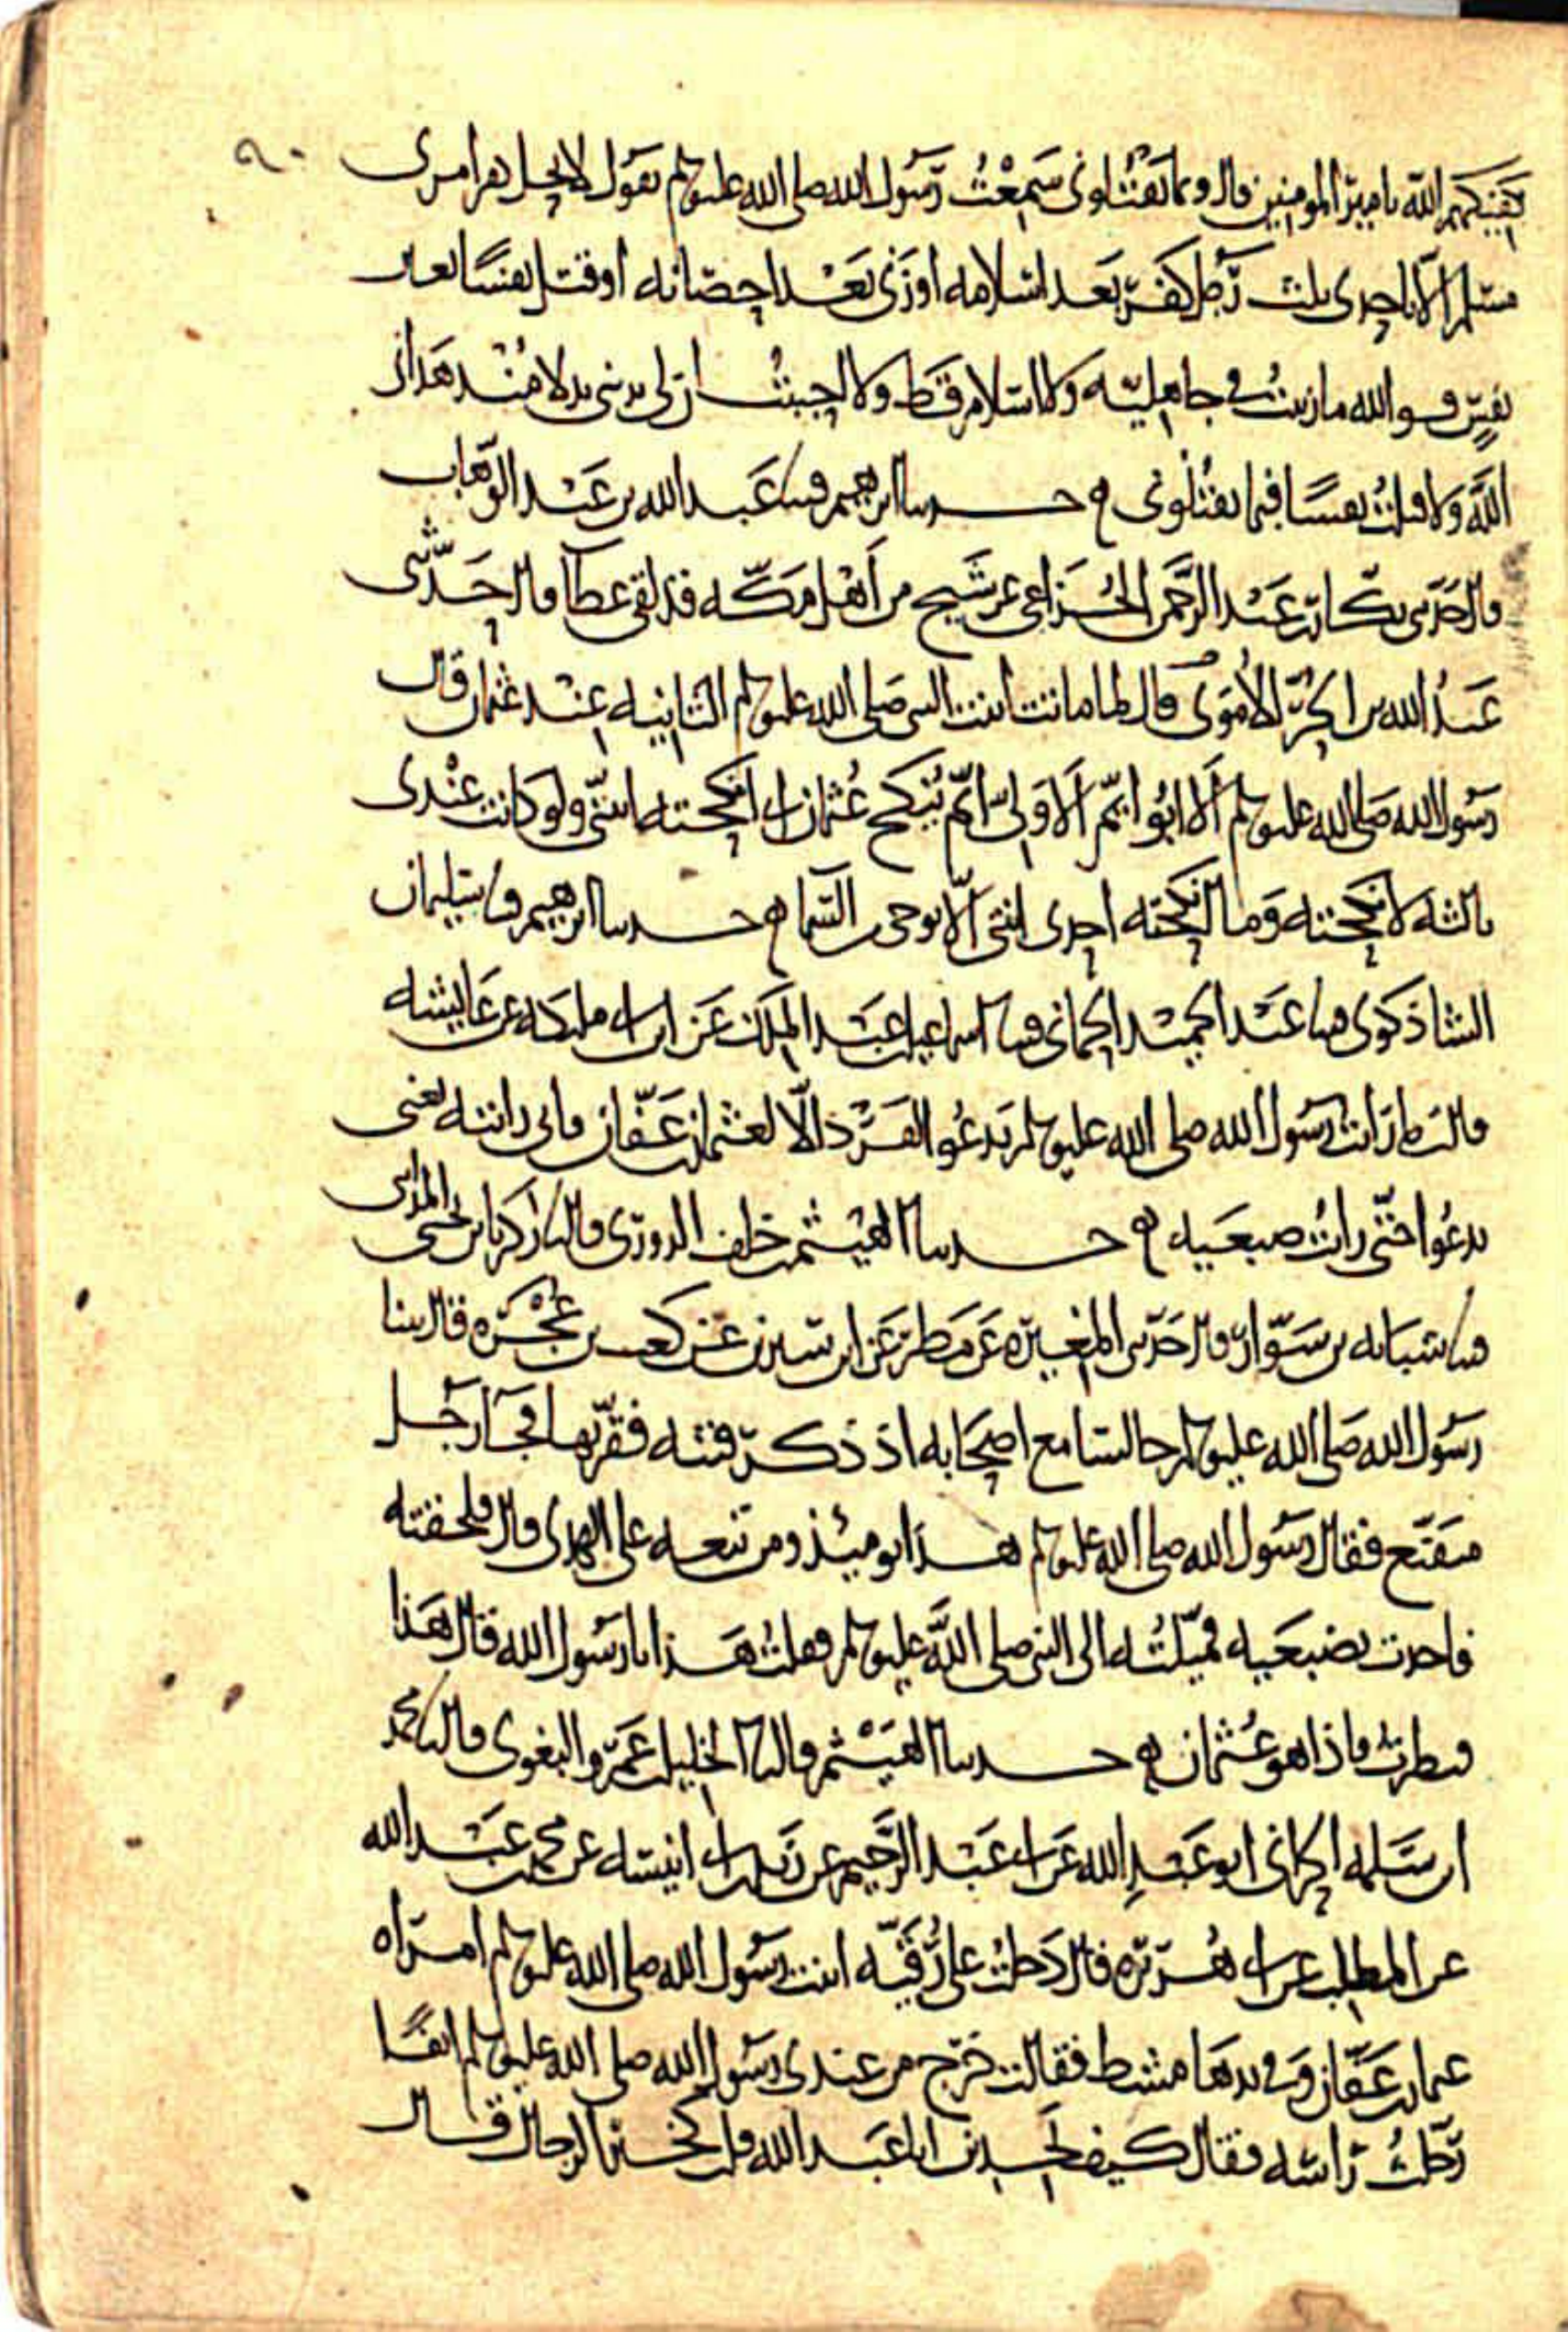 ٩٠
يكفيكهم الله يا امير المومنين قال وبما يقتلوني سمعت رسول الله صلى الله عليه وسلم يقول لا يحل دم امرئ
مسلم الا باحدى ثلث رجل كفر بعد اسلامه او زنى بعد احصانه او قتل نفسا بغير
نفس فوالله ما زنيت في جاهلية ولا اسلام قط ولا احببت ان لي بديني بدلا منذ هداني
الله ولا قتلت نفسا فبما يقتلوني ه حدثنا ابرهيم قثنا عبد الله بن عبد الوهاب
قال حدثني بكار بن عبد الرحمن الخزاعي عن شيخ من اهل مكة قد لقي عطا قال حدثني
عبد الله بن الحر الاموي قال لما ماتت ابنت النبي صلى الله عليه وسلم الثانيه عند عثمان قال
رسول الله صلى الله عليه وسلم الا ابو ايم الا ولي ايم ينكح عثمان اني انكحته ابنتي ولو كانت عندي
ثالثه لانكحته وما انكحته احدى ابنتي الا بوحي من السما ه حدثنا ابرهيم قثنا سليمان
الشاذكوي قثنا عبد الحميد الحماني قثنا اسماعيل بن عبد الملك عن ابن ابي مليكه عن عايشه
قالت ما رايت رسول الله صلى الله عليه وسلم يدعو الفرد الا لعثمان بن عفان فاني رايته يعني
يدعوا حتى رايت ضبعيه ه حدثنا الهيثم بن خلف الدوري قال نا زكريا بن يحيى المدايني
قثنا شبابه بن سوار قال حدثني المغيره عن مطر عن ابن سيرين عن كعب بن عجره قال بينا
رسول الله صلى الله عليه وسلم جالسا مع اصحابه اذ ذكر فتنه فقربها فجا رجل
متقنع فقال رسول الله صلى الله عليه وسلم هذا يوميئذ ومن تبعه على الهدى قال فلحقته
فاخذت بضبعيه فميلته الى النبي صلى الله عليه وسلم فقلت هذا يا رسول الله قال هذا
فنظرت فاذا هو عثمان ه حدثنا الهيثم قال نا الخليل بن عمرو البغوي قال نا محمد
ابن سلمه الحراني ابو عبد الله عن ابي عبد الرحيم عن زيد بن ابي انيسه عن محمد بن عبد الله
عن المطلب عن ابي هريره قال دخلت على رقيه ابنت رسول الله صلى الله عليه وسلم امراه
عثمان بن عفان وفي يدها مشط فقالت خرج من عندي رسول الله صلى الله عليه وسلم انفا
رجلت راسه فقال كيف تجدين ابا عبد الله قلت كخير الرجال قال